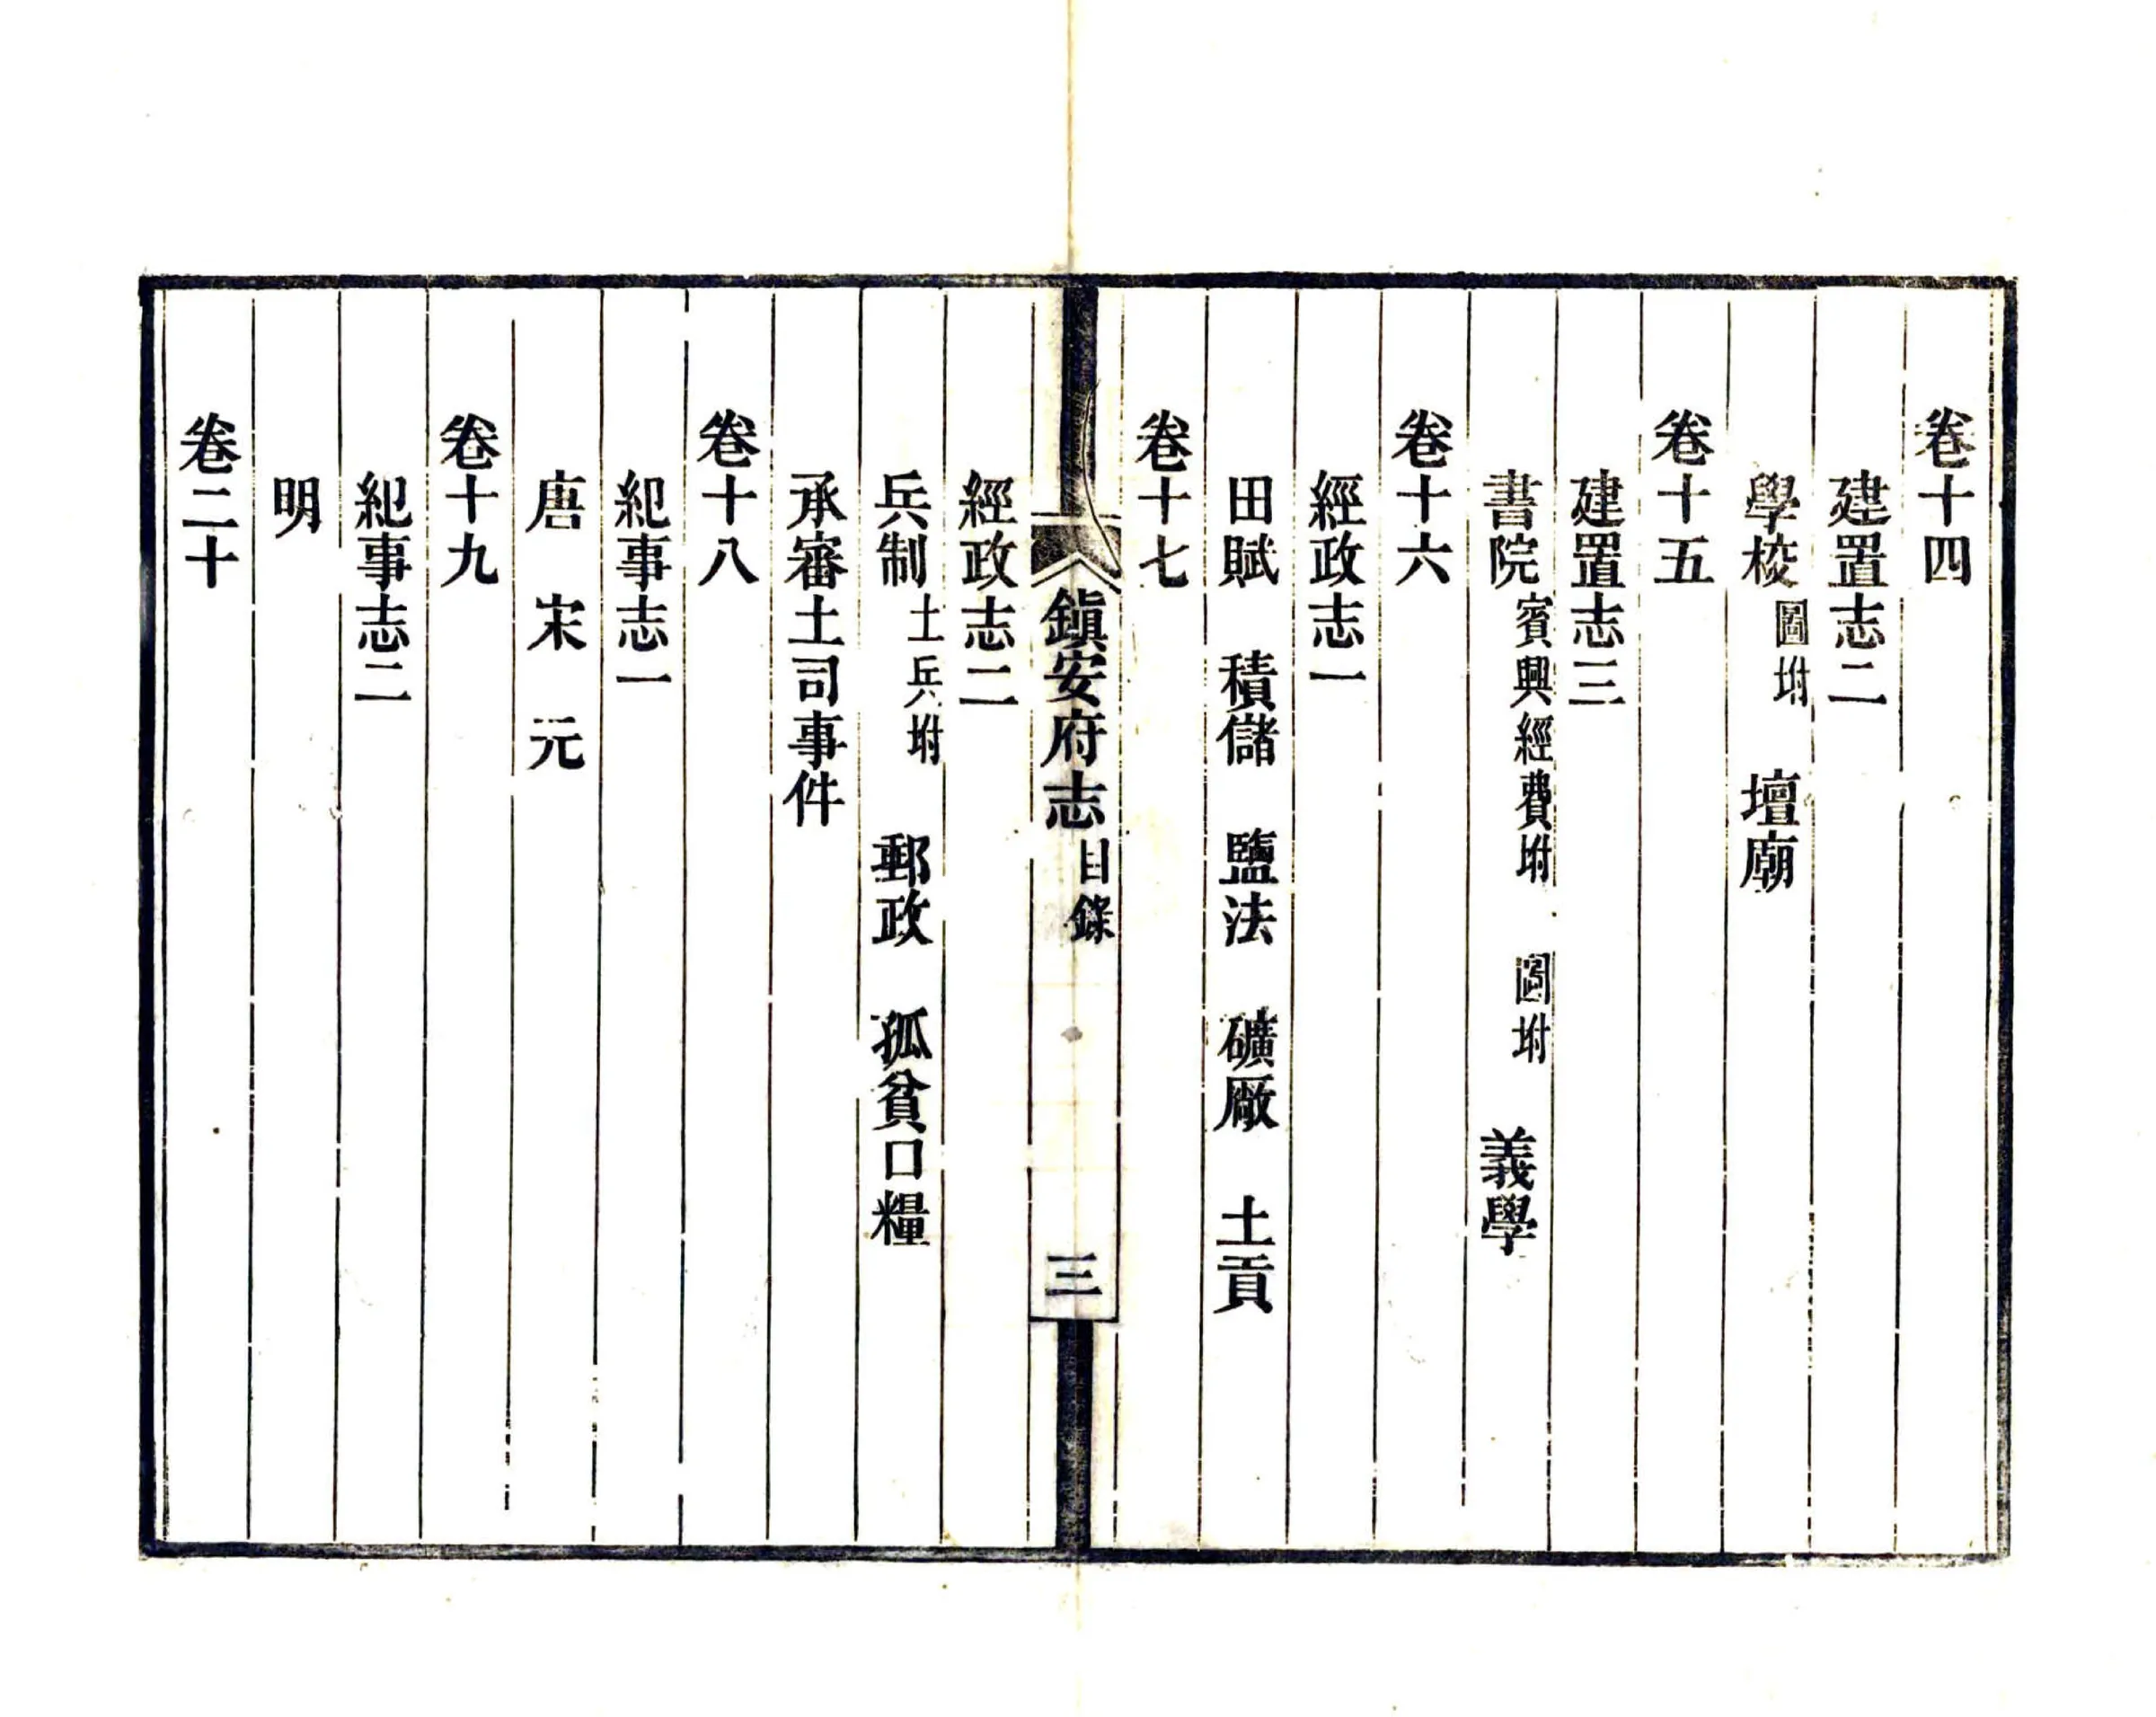 卷十四
建置志二
學校圖坿　壇廟
卷十五
建置志三
書院賓興經費坿　圖坿　義學
卷十六
經政志一
田賦　積儲　鹽法　礦厰　土貢
卷十七
鎮安府志目錄　三
經政志二
兵制土兵坿　郵政　孤貧口糧
承審土司事件
卷十八
紀事志一
唐　宋　元
卷十九
紀事志二
明
卷二十